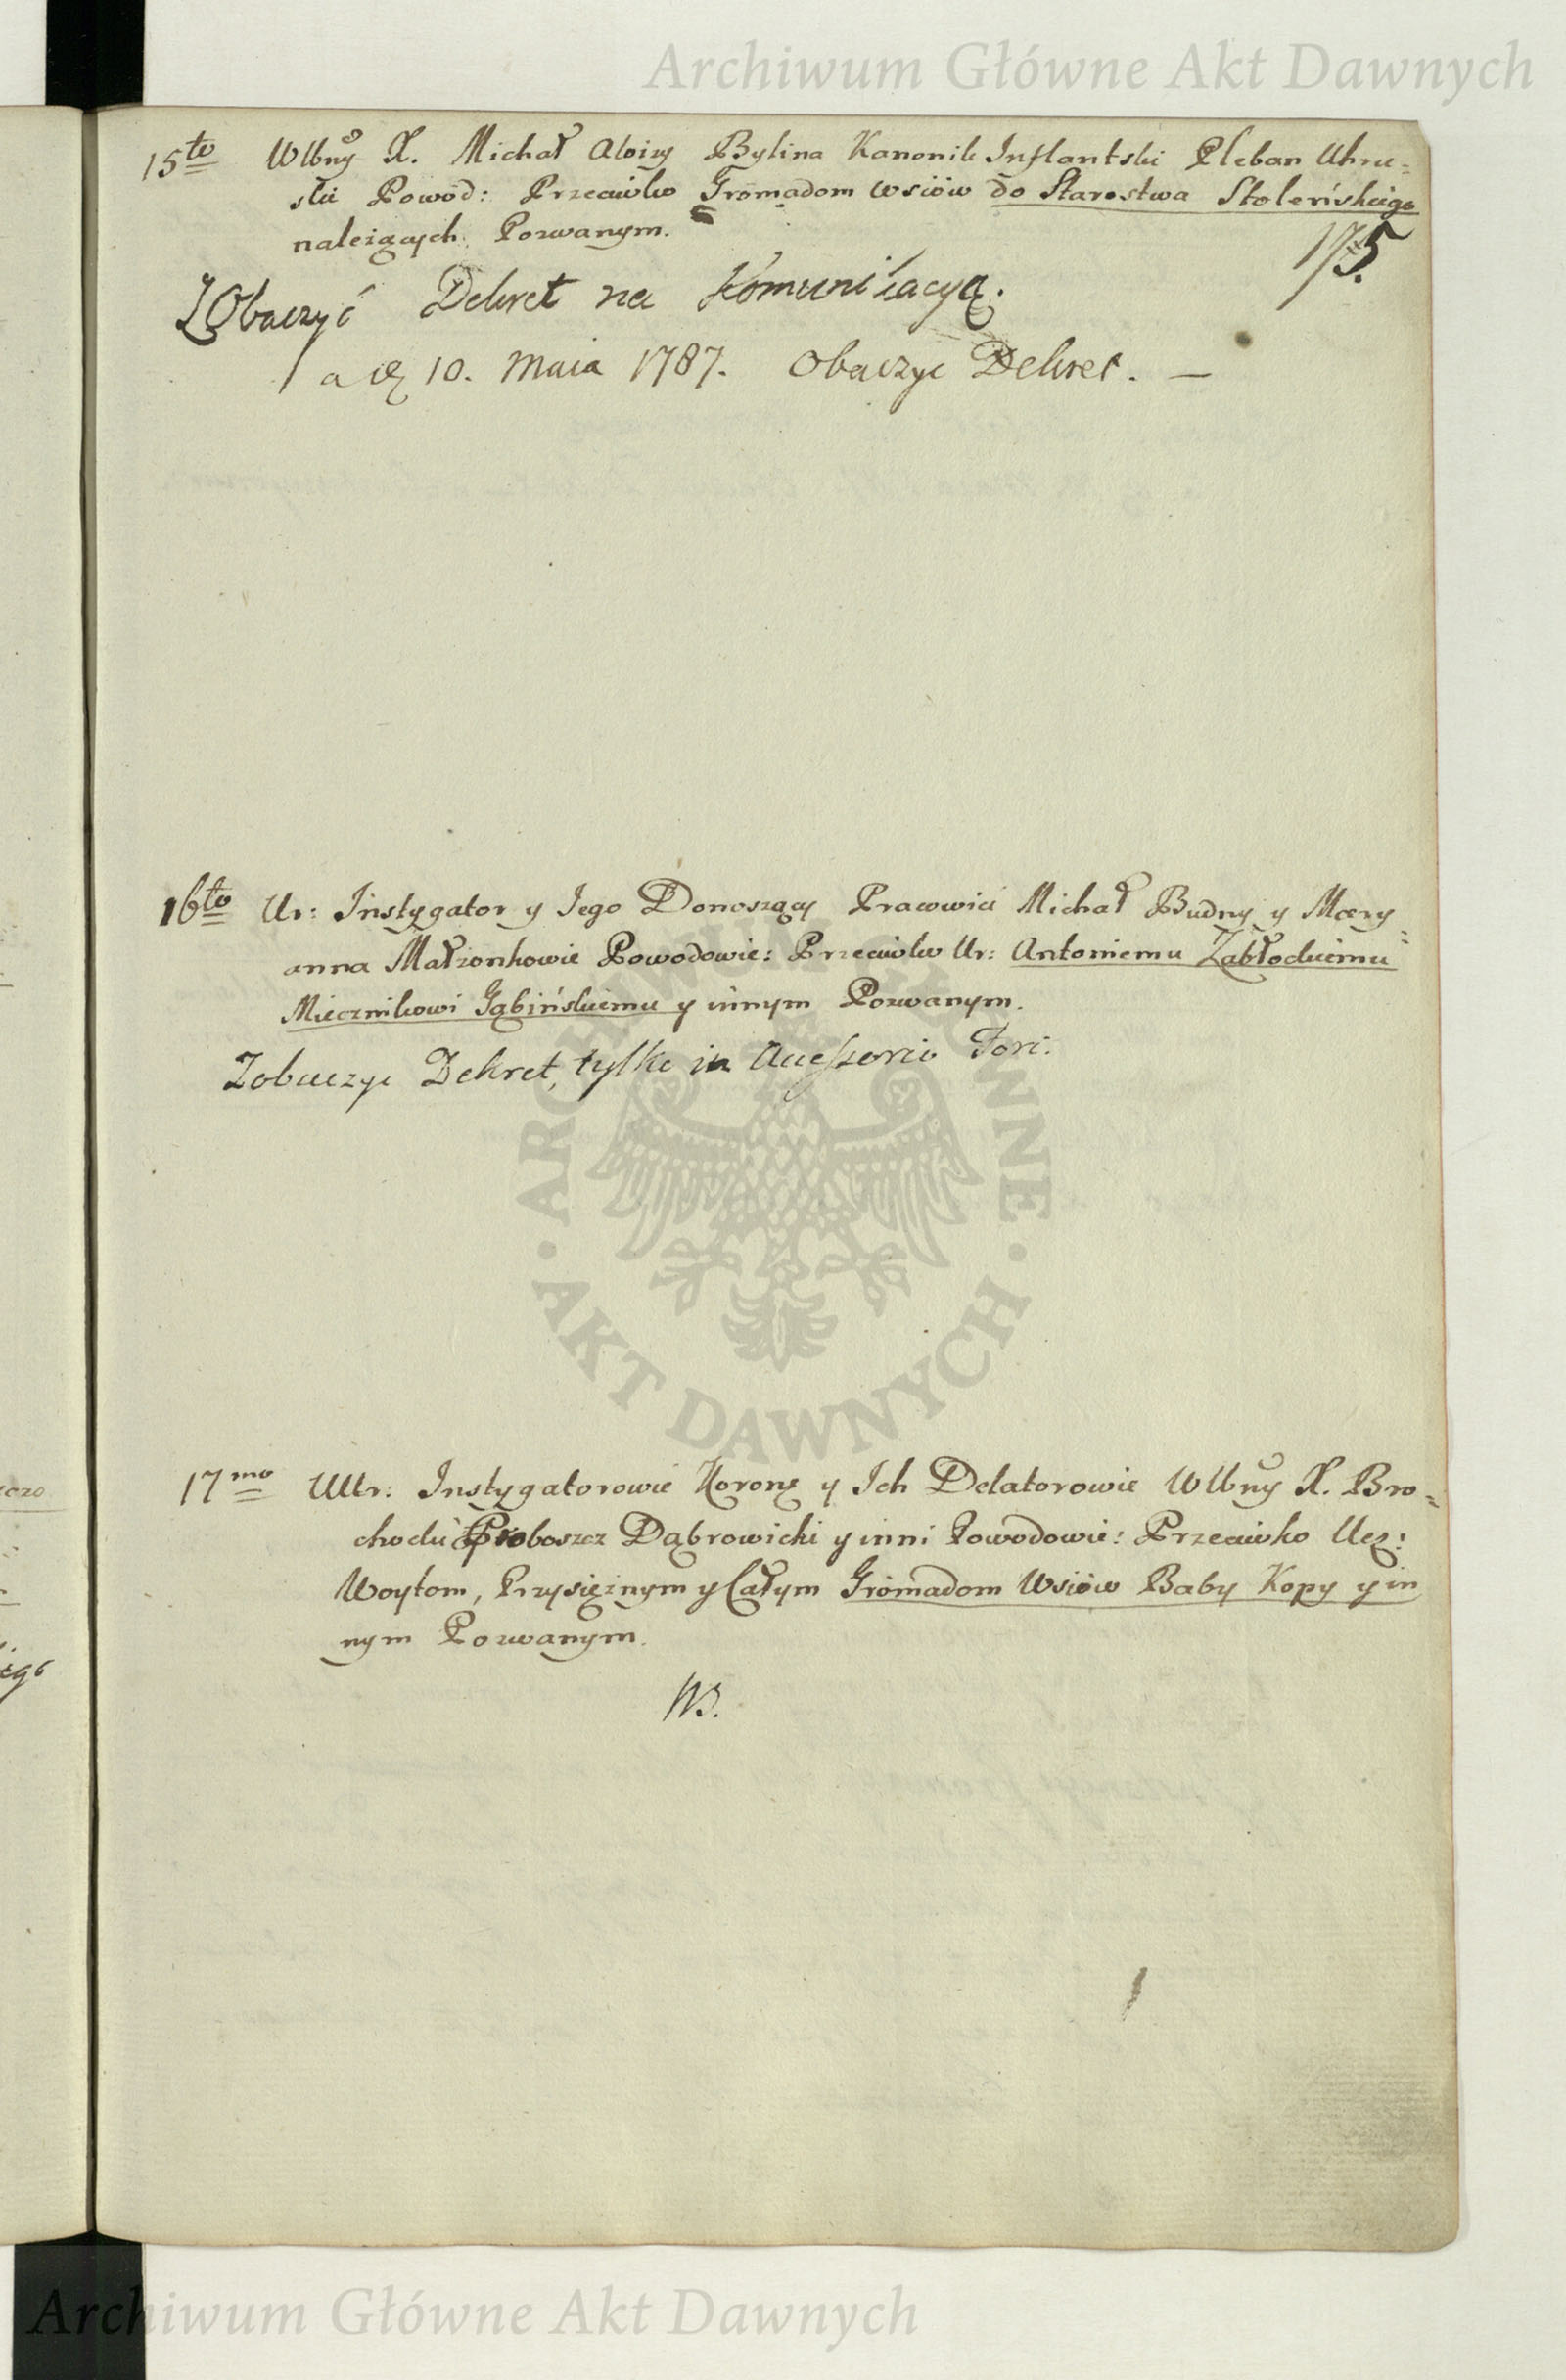 Archiwum Główne Akt Dawnych
15to Wlbny X. Michał Aloizy Bylina Kanonik Inflantski Pleban Uhru=
ski Powod: Przeciwko Gromadom wsiów do Starostwa Stoleńskiego
należących Pozwanym.
175.
Zobaczyć Dekret na Komunikacyą.
10. Maia 1787. Obaczyc Dekret. —
16to Ur: Instygator y Iego Donoszący Pracowici Michał Budny y Mary=
anna Małżonkowie Powodowie: Przeciwko Ur: Antoniemu Zabłockiemu
Miecznikowi Gąbińskiemu y innym Pozwanym.
Zobaczyc Dekret, tylko in Accessorio Fori.
17mo UUr: Instygatorowie Korony y Ich Delatorowie Wlbny X. Bro=
chocki Proboszcz Dąbrowicki y inni Powodowie: Przeciwko Ucz:
Woytom, Przysiężnym y Całym Gromadom Wsiów Baby Kopy y in
nym Pozwanym.
ARCHIWUM GŁÓWNE · AKT DAWNYCH ·
Archiwum Główne Akt Dawnych